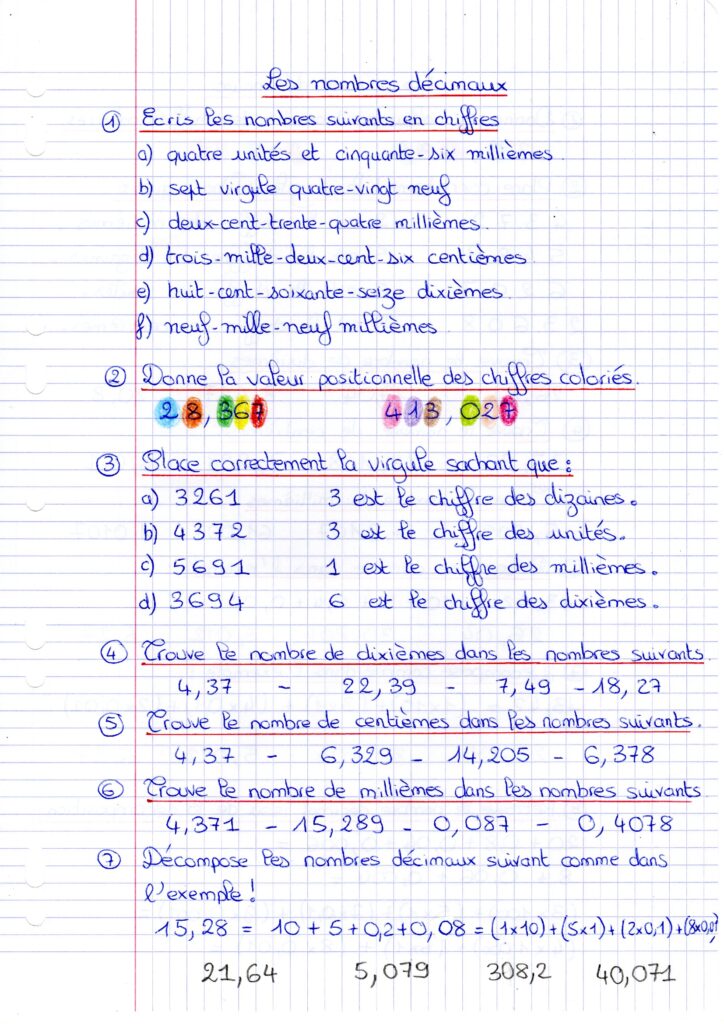 Les nombres décimaux
① Ecris les nombres suivants en chiffres
a) quatre unités et cinquante-six millièmes.
b) sept virgule quatre-vingt neuf
c) deux-cent-trente-quatre millièmes.
d) trois-mille-deux-cent-six centièmes.
e) huit-cent-soixante-seize dixièmes.
f) neuf-mille-neuf millièmes.
② Donne la valeur positionnelle des chiffres coloriés.
28,367 413,027
③ Place correctement la virgule sachant que :
a) 3261 3 est le chiffre des dizaines.
b) 4372 3 est le chiffre des unités.
c) 5691 1 est le chiffre des millièmes.
d) 3694 6 est le chiffre des dixièmes.
④ Trouve le nombre de dixièmes dans les nombres suivants.
4,37 - 22,39 - 7,49 - 18,27
⑤ Trouve le nombre de centièmes dans les nombres suivants.
4,37 - 6,329 - 14,205 - 6,378
⑥ Trouve le nombre de millièmes dans les nombres suivants
4,371 - 15,289 - 0,087 - 0,4078
⑦ Décompose les nombres décimaux suivant comme dans
l'exemple !
15,28 = 10 + 5 + 0,2 + 0,08 = (1x10) + (5x1) + (2x0,1) + (8x0,01)
21,64 5,079 308,2 40,071